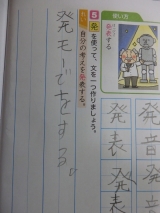 使い方
発表する
5 発を使って、文を一つ作りましょう。
自分の考えを発表する。
発モーでをする。
発表
発音
発表
発音